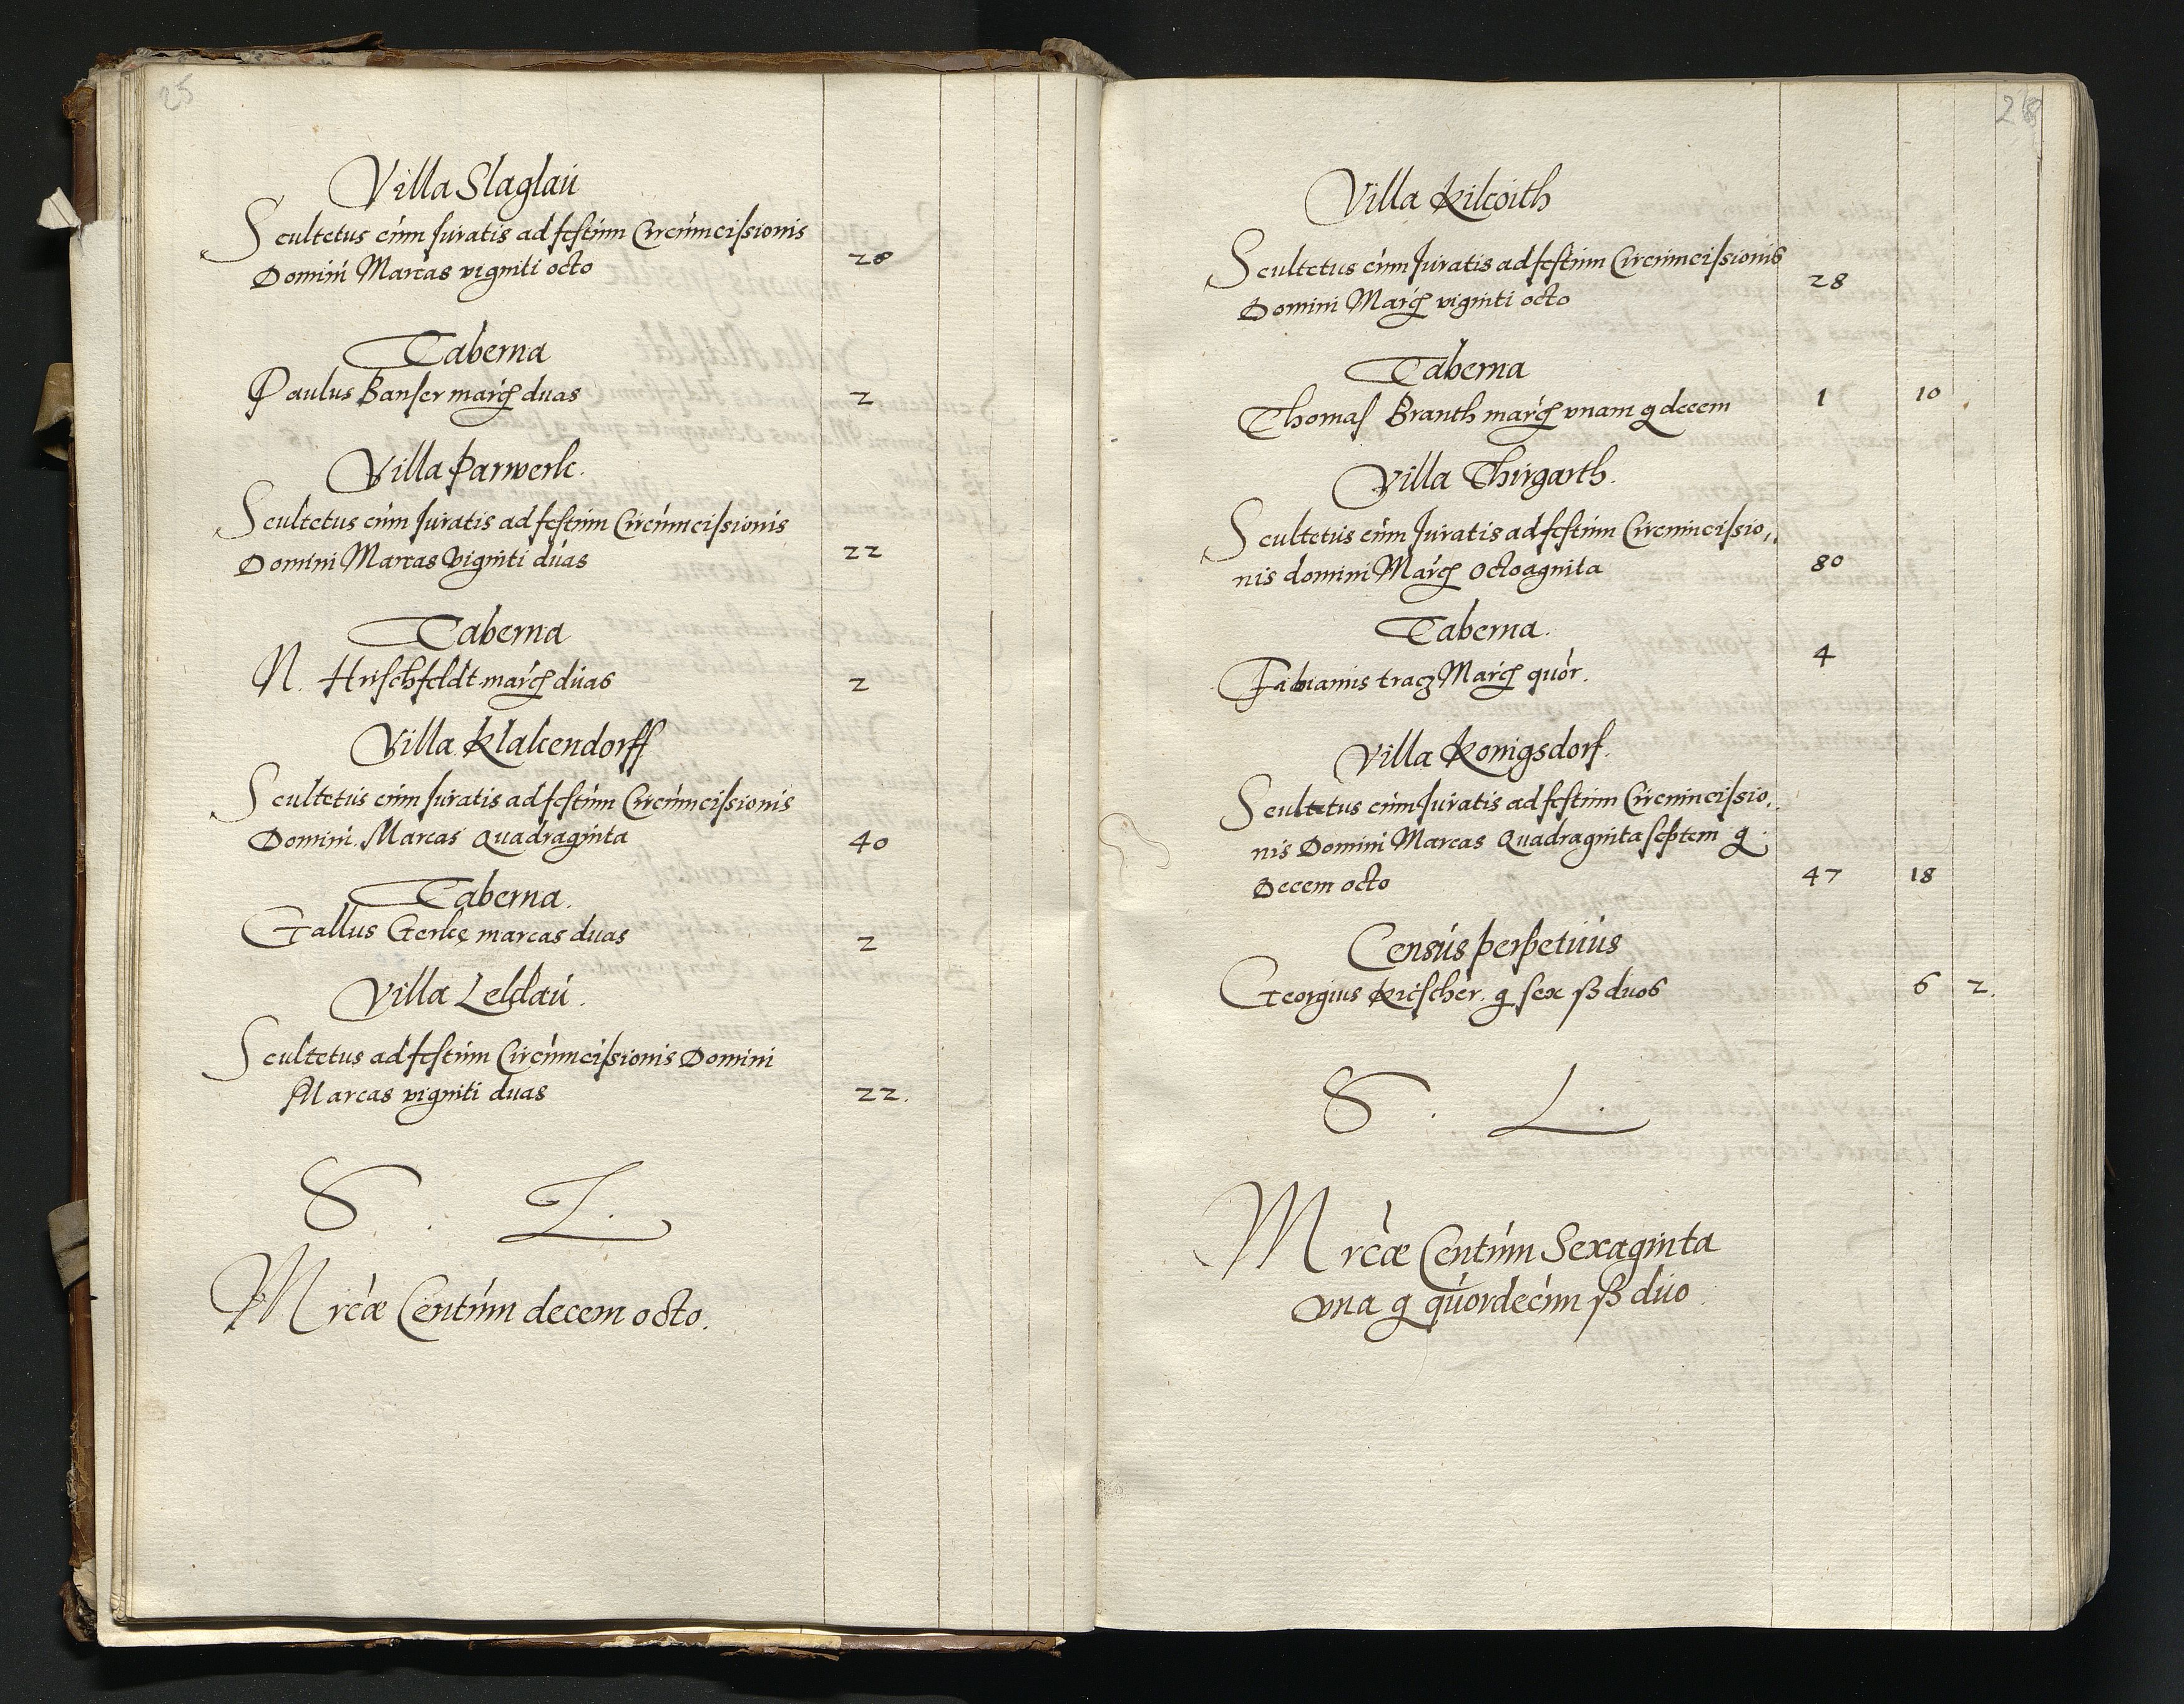 25
Villa Slaglaú
Scultetus cúm Iuratis ad festúm Circúmcisionis
Domini Marcas viginti octo 28
Taberna
Paulus Banser marcȩ duas 2
Villa Parwerk.
Scultetus cúm Iuratis ad festúm Circúmcisionis
Domini Marcas Viginti dúas 22
Taberna
N. Hirschfeldt marcȩ dúas 2
Villa Klakendorff
Scultetús cúm Iuratis ad festúm Circúmcisionis
Domini. Marcas Quadraginta 40
Taberna.
Gallus Gerkȩ marcas duas 2
Villa Leklaú.
Scultetus ad festúm Circúmcisionis Domini
Marcas viginti duas 22.
S. L.
Mrcæ Centúm decem octo.
Villa Kilcoith
Scultetus cúm Iuratis ad festúm Circúmcisionis
Domini Marcȩ viginti octo 28
Taberna
Thomas Branth marcȩ vnam g decem 1 10
Villa Thirgarth.
Scultetús cúm Iuratis ad festúm Circúmcisio,,
nis domini Marcȩ octoaginta 80
Taberna.
Fabianús tracz Marcȩ quòr. 4
Villa Konigsdorf.
Scultetus cúm Iuratis ad festúm Circúmcisio,,
nis Domini Marcas Quadraginta septem g
Decem octo 47 18
Censús perpetúús
Georgius Kirscher. g sex ß duos 6 2.
S. L.
Mrcæ Centúm Sexaginta
vna g quòrdecim ß dúo.